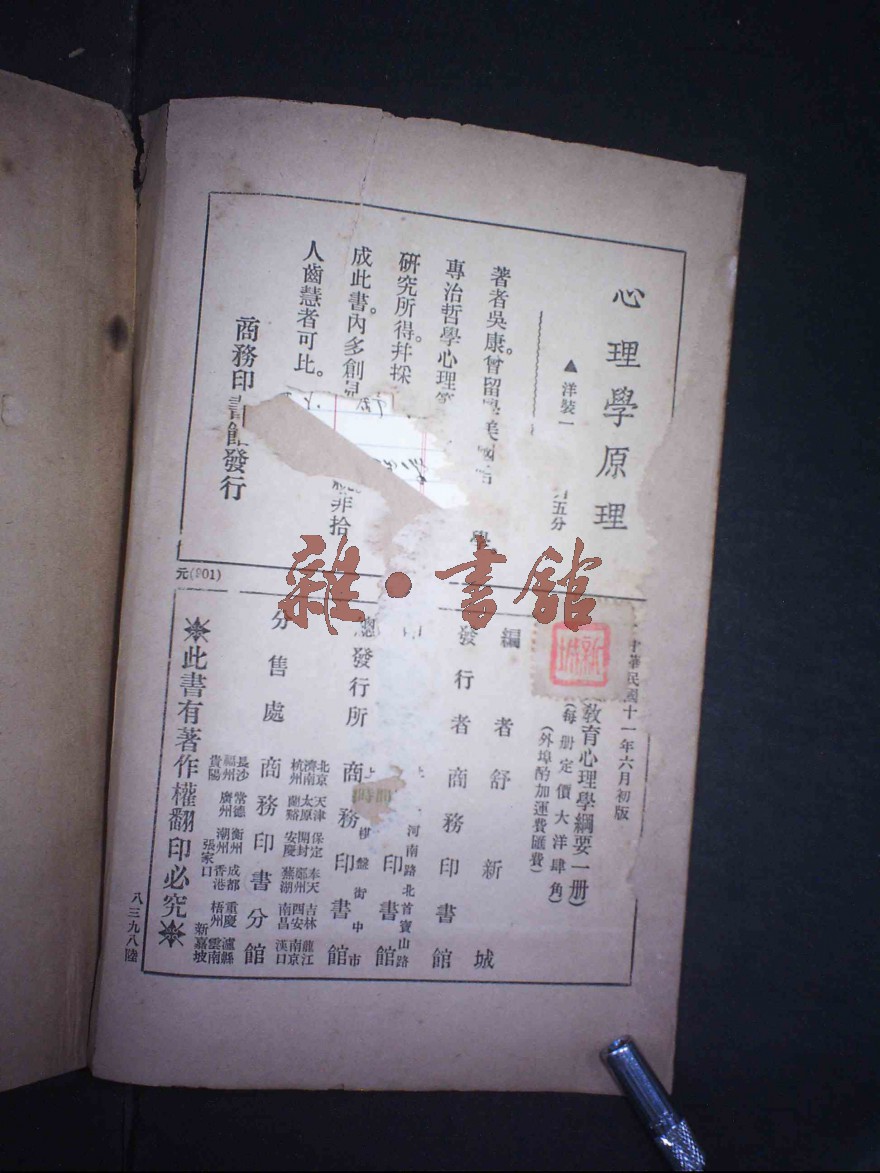 心理學原理
▲洋裝一
五分
著者吳康。曾留學美國
學。
專治哲學心理等
研究所得。幷採
成此書。內多創見
非拾
人齒慧者可比。
商務印書館發行
元(901)
中華民國十一年六月初版
教育心理學綱要一册)
(每册定價大洋肆角)
(外埠酌加運費匯費)
編者舒新城
發行者商務印書館
河南路北首寶山路
印書館
總發行所商務印書館
棋盤街中市
分售處商務印書分館
北京天津保定奉天吉林龍江
濟南太原開封鄭州西安南京
杭州蘭谿安慶蕪湖南昌漢口
長沙常德衡州成都重慶瀘縣
福州廣州潮州香港梧州雲南
貴陽張家口新嘉坡
※此書有著作權翻印必究※
八三九八陸
新城
雜·書館